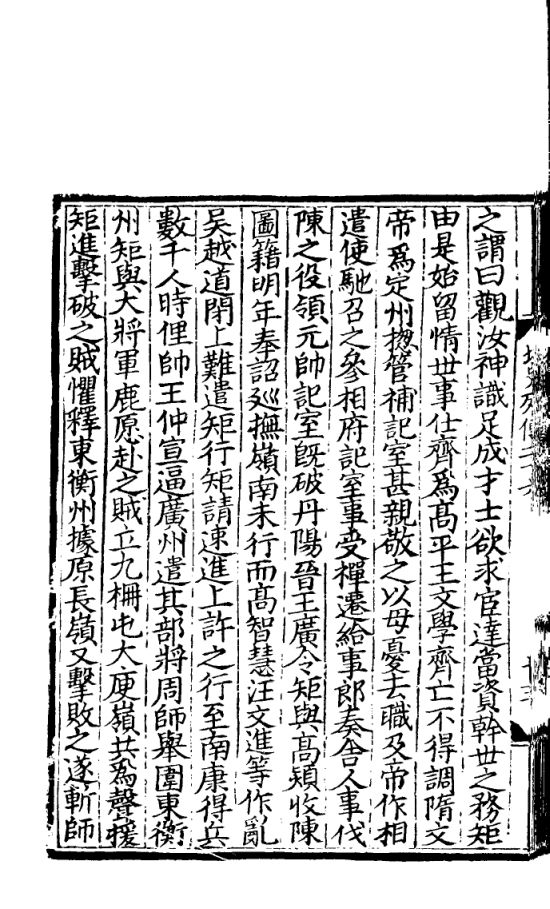 之謂曰觀汝神識足成才士欲求宦達當資幹世之務矩
由是始留情世事仕齊爲髙平王文學齊亡不得調隋文
帝爲定州揔管補記室甚親敬之以母憂去職及帝作相
遣使馳召之參相府記室事受禪遷給事郎奏舍人事伐
陳之役領元帥記室旣破丹陽晉王廣令矩與髙熲收陳
圖籍明年奉詔廵撫嶺南未行而髙智慧汪文進等作亂
吳越道閉上難遣矩行矩請速進上許之行至南康得兵
數千人時俚帥王仲宣逼廣州遣其部將周師舉圍東衡
州矩與大將軍鹿愿赴之賊立九柵屯大庾嶺共爲聲援
矩進擊破之賊懼釋東衡州據原長嶺又擊敗之遂斬師